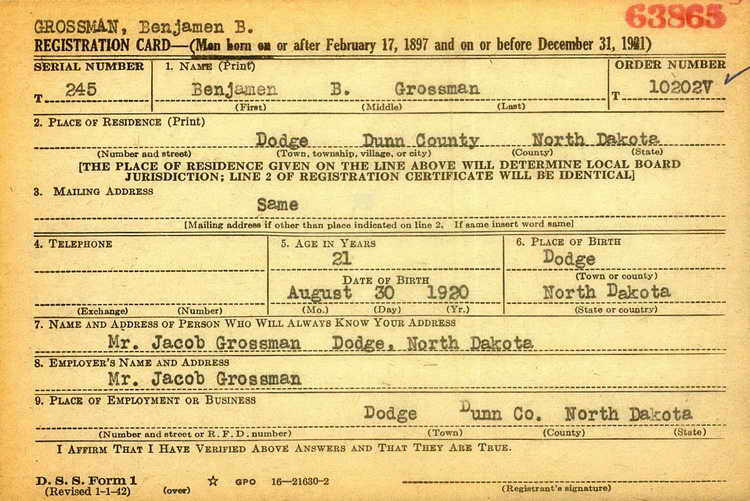 63865
GROSSMAN, Benjamen B.
REGISTRATION CARD—(Men born on or after February 17, 1897 and on or before December 31, 1921)
SERIAL NUMBER 1. NAME (Print) ORDER NUMBER
T 245 Benjamen B. Grossman T 10202V
(First) (Middle) (Last)
2. PLACE OF RESIDENCE (Print)
Dodge Dunn County North Dakota
(Number and street) (Town, township, village, or city) (County) (State)
[THE PLACE OF RESIDENCE GIVEN ON THE LINE ABOVE WILL DETERMINE LOCAL BOARD
JURISDICTION; LINE 2 OF REGISTRATION CERTIFICATE WILL BE IDENTICAL]
3. MAILING ADDRESS
Same
[Mailing address if other than place indicated on line 2. If same insert word same]
4. TELEPHONE 5. AGE IN YEARS 6. PLACE OF BIRTH
21 Dodge
DATE OF BIRTH (Town or county)
August 30 1920 North Dakota
(Exchange) (Number) (Mo.) (Day) (Yr.) (State or country)
7. NAME AND ADDRESS OF PERSON WHO WILL ALWAYS KNOW YOUR ADDRESS
Mr. Jacob Grossman Dodge, North Dakota
8. EMPLOYER'S NAME AND ADDRESS
Mr. Jacob Grossman
9. PLACE OF EMPLOYMENT OR BUSINESS
Dodge Dunn Co. North Dakota
(Number and street or R. F. D. number) (Town) (County) (State)
I AFFIRM THAT I HAVE VERIFIED ABOVE ANSWERS AND THAT THEY ARE TRUE.
D. S. S. Form 1
(Revised 1-1-42) (over) ☆ GPO 16—21630-2
(Registrant's signature)